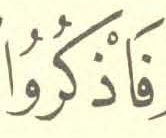 فَاْذْكُرُوُا